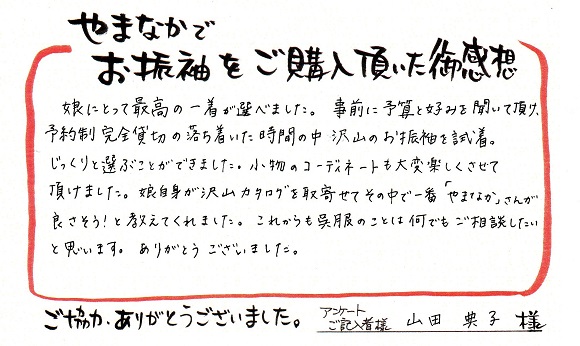 やまなかで
お振袖をご購入頂いた御感想
娘にとって最高の一着が選べました。事前に予算と好みを聞いて頂け、
予約制完全貸切の落ち着いた時間の中 沢山のお振袖を試着。
じっくりと選ぶことができました。小物のコーディネートも大変楽しくさせて
頂けました。娘自身が沢山カタログを取寄せてその中で一番「やまなか」さんが
良さそう!と教えてくれました。これからも呉服のことは何でもご相談したい
と思います。ありがとうございました。
ご協力、ありがとうございました。
アンケート
ご記入者様 山田 典子 様